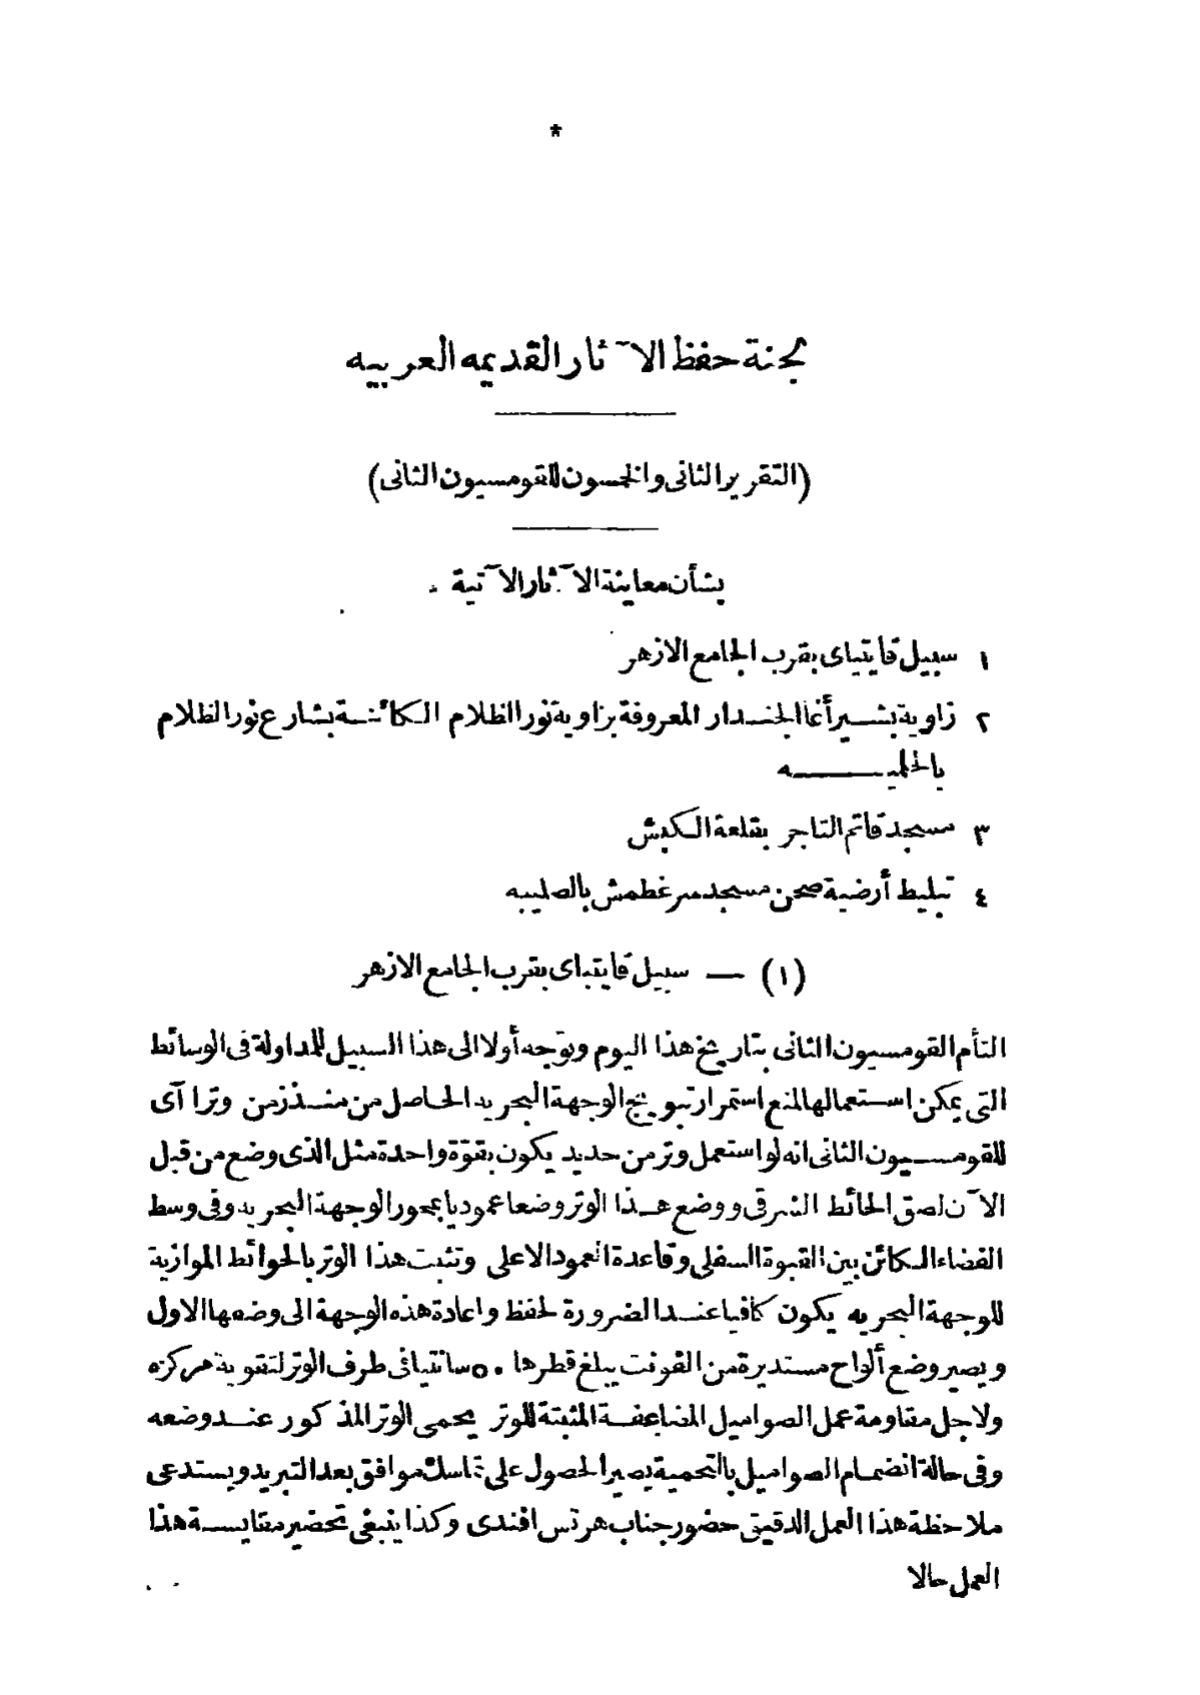 *
لجنة حفظ الآثار القديمه العربيه
(التقرير الثانى والخمسون للقومسيون الثانى)
بشأن معاينة الآثار الآتية
١ سبيل قايتباى بقرب الجامع الازهر
٢ زاوية بشير أغا الجندار المعروفة بزاوية نور الظلام الكائنة بشارع نور الظلام
بالحلميه
٣ مسجد قاتم التاجر بقلعة الكبش
٤ تبليط أرضية صحن مسجد صرغطمش بالصليبه
(١) — سبيل قايتباى بقرب الجامع الازهر
التأم القومسيون الثانى بتاريخ هذا اليوم وتوجه أولا الى هذا السبيل للمداولة فى الوسائط
التى يمكن استعمالها لمنع استمرار تبويج الوجهة البحريه الحاصل من منذ زمن وترا آى
للقومسيون الثانى انه لو استعمل وتر من حديد يكون بقوّة واحدة مثل الذى وضع من قبل
الآن لصق الحائط الشرقى ووضع هذا الوتر وضعا عموديا بمحور الوجهة البحريه وفى وسط
الفضاء الكائن بين القبوة السفلى وقاعدة العمود الاعلى وتثبت هذا الوتر بالحوائط الموازية
للوجهة البحريه يكون كافيا عند الضرورة لحفظ واعادة هذه الوجهة الى وضعها الاول
ويصير وضع ألواح مستديرة من الفونت يبلغ قطرها ٥٠ سانتيا فى طرف الوتر لتقوية مركزه
ولاجل مقاومة عمل الصواميل المضاعفة المثبتة للوتر يحمى الوتر المذكور عند وضعه
وفى حالة انضمام الصواميل بالتحمية يصير الحصول على تماسك موافق بعد التبريد ويستدعى
ملاحظة هذا العمل الدقيق حضور جناب هرتس افندى وكذا ينبغى تحضير مقايسة هذا
العمل حالا